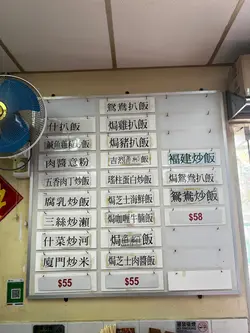 什扒飯
鹹魚雞粒飯
肉醬意粉
五香肉丁炒飯
腐乳炒飯
三絲炒瀨
什菜炒河
廈門炒米
$55
鴛鴦扒飯
焗雞扒飯
焗豬扒飯
吉烈飯
瑤柱蛋白炒飯
焗芝士海鮮飯
焗咖喱牛腩飯
焗飯
焗芝士肉醬飯
$55
福建炒飯
焗鴛鴦扒飯
鴛鴦炒飯
$58